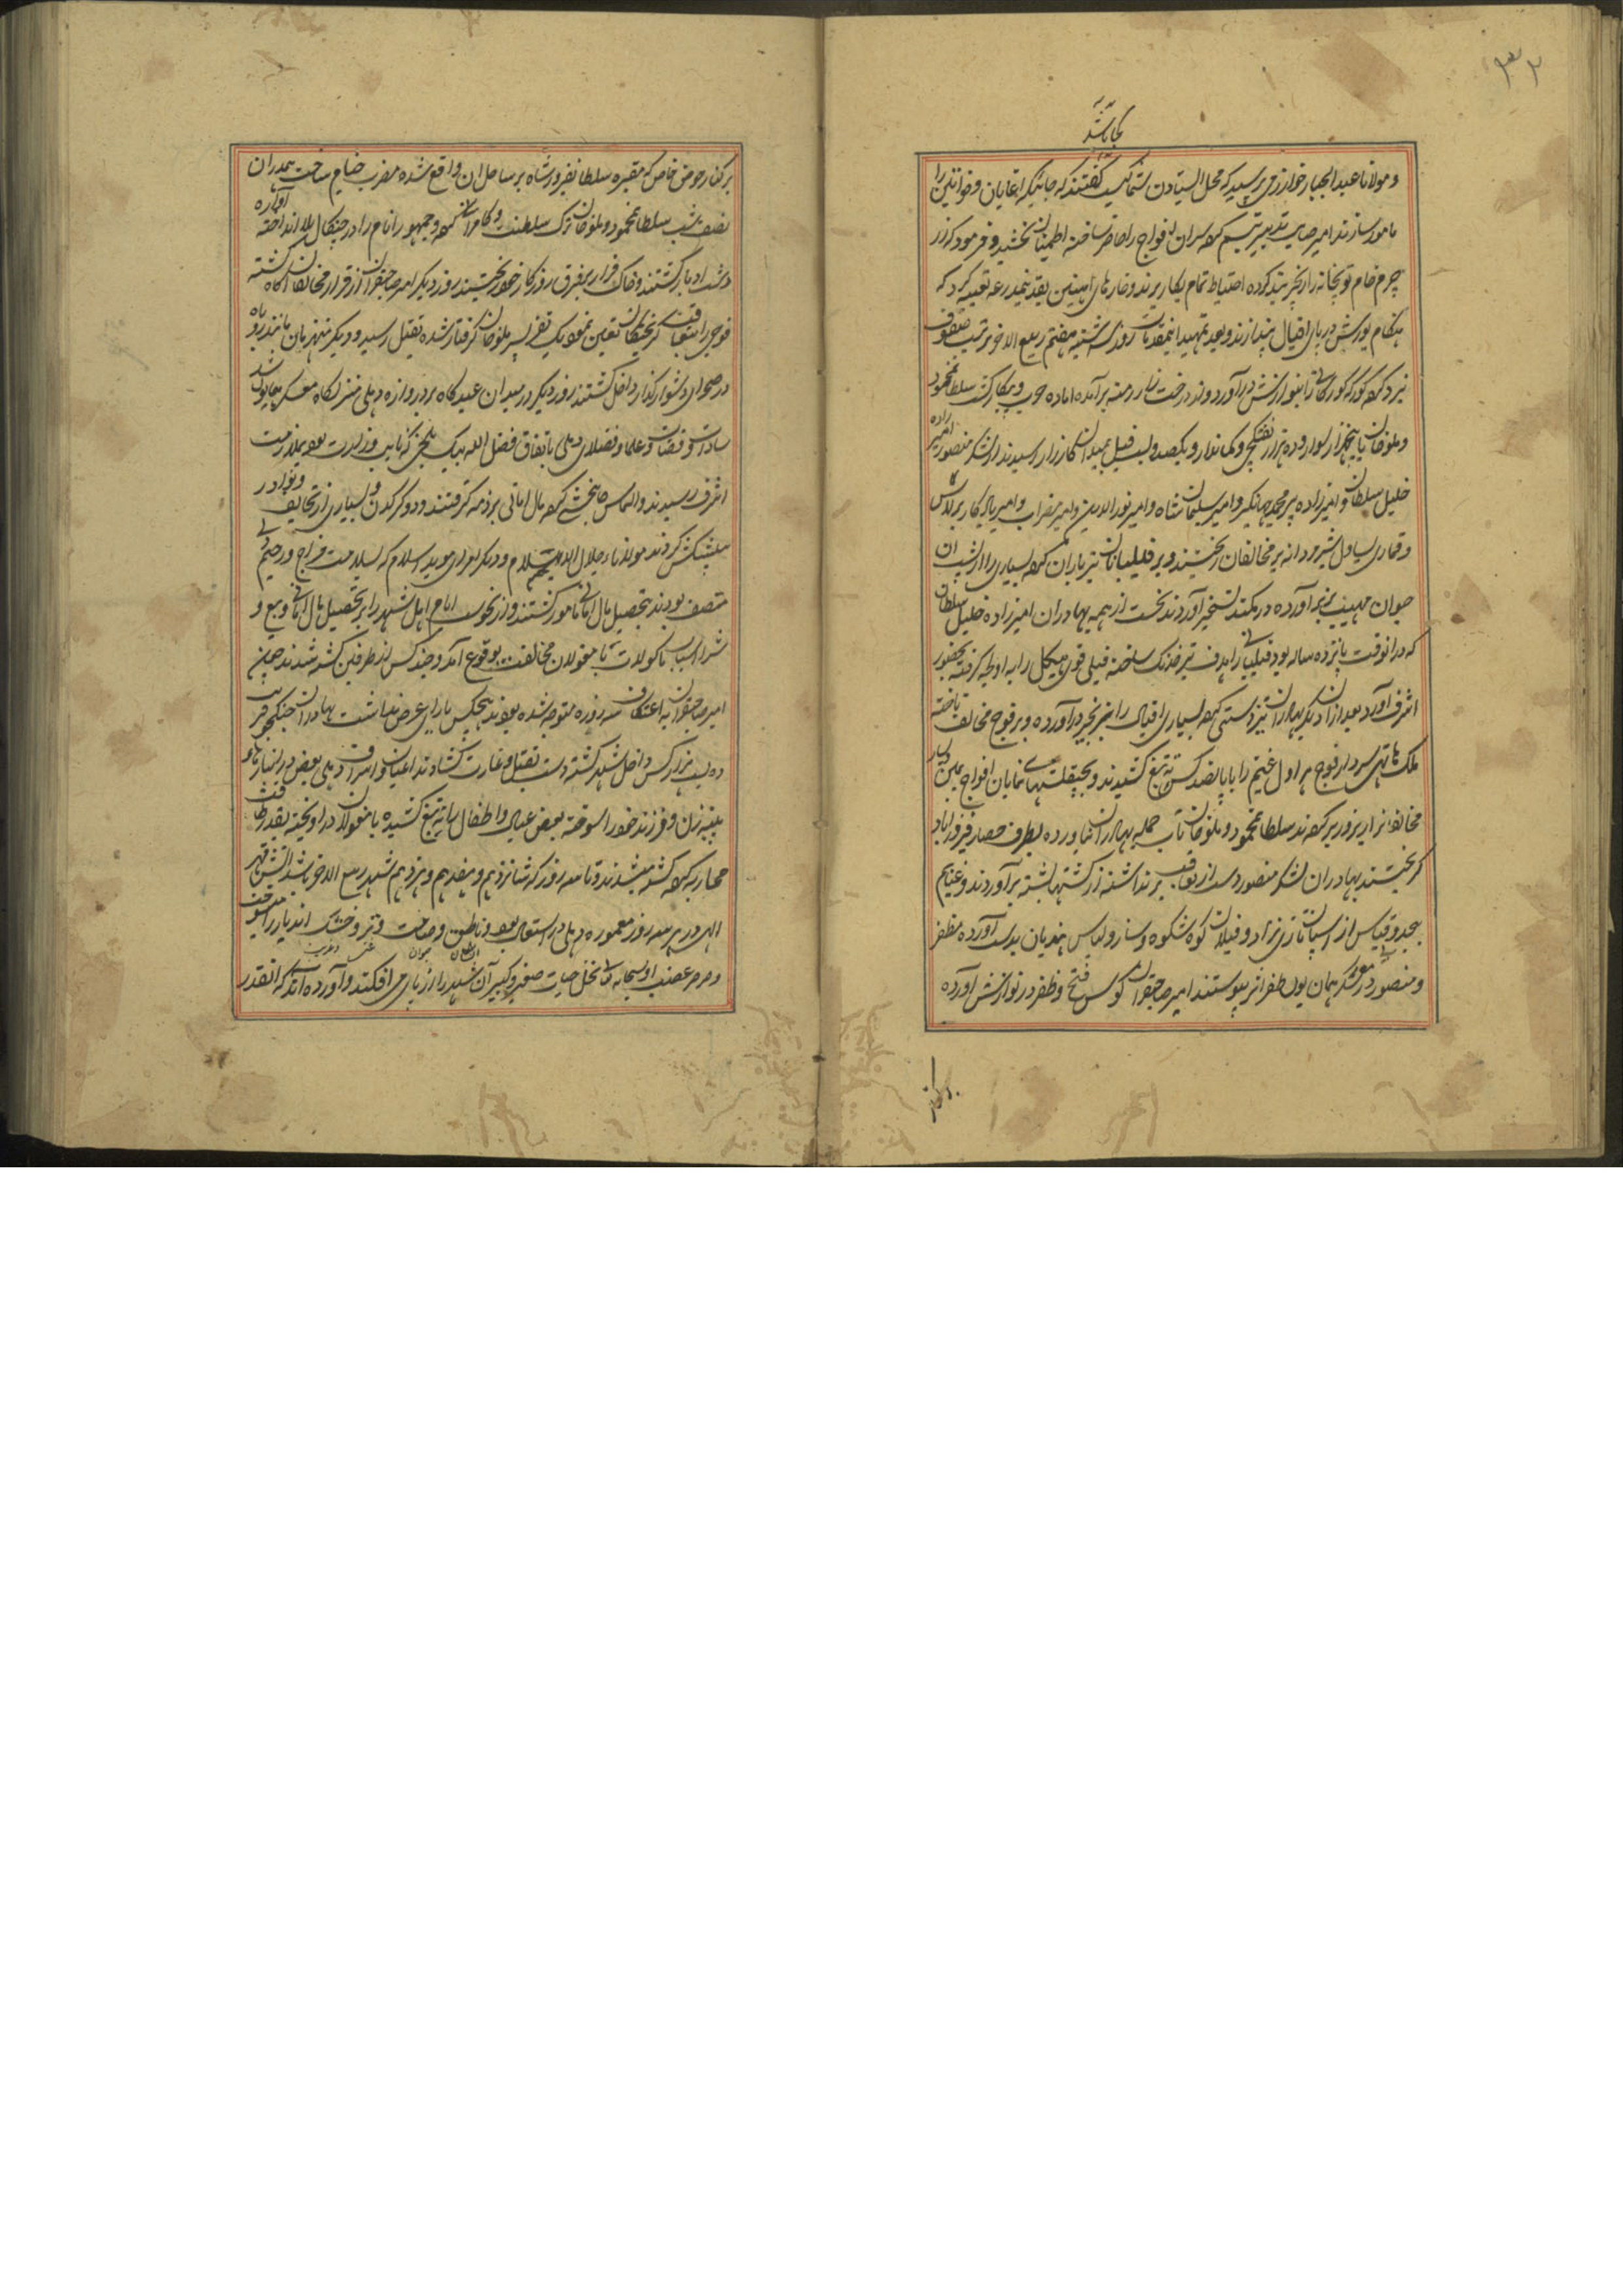 ۳۳۲
کجا باشد
و مولانا عبد الجبار خوارزمی پرسید که محل ایستادن شما کیست گفتند که جائیکه اغایان و خواتین را
مامور سازند امیر صایب تدبیر تبسم کرده سران افواج را حاضر ساخته اطمینان بخشید و فرمود که از
چرم خام توبخانه را زنجیر بند کرده احتیاط تمام بکار برند و خارهای آهنین بقدر نیمذرعه تعبیه کرد که
هنگام یورش در پای افیال بیندازند و بعد تمهید اینمقدمات روز سه شنبه هفتم ربیع الاخر ترتیب صفوف
نبرد کرده کورکه کورکانرا بنوازش درآورد و اماده حرب و پیکار گشت سلطان محمود
و ملوخان با پنجهزار سوار و ده هزار تفنگچی و کماندار و یکصد و بیست فیل بمیدان کارزار رسیدند از لشکر منصور امیرزاده
خلیل سلطان و امیرزاده پیر محمد جهانگیر و امیر سلیمان شاه و امیر نورالدین و امیر مضراب و امیر یادگار برلاس
و قماری یساول شیر دانه بر مخالفان ریختند و بر فیلبانان تیرباران کرده بسیاری را از پشت ان
حیوان مهیب بزیر آورده در کمند تسخیر آوردند نخست از همه بهادران امیرزاده خلیل سلطان
که درانوقت پانزده ساله بود فیلبانی را هدف تیر خدنک ساخته فیلی قوی هیکل را به اولجه گرفته بحضور
اشرف آورد بعد ازان دیگر بهادران تیز دستی کرده بسیاری افیال را بزنجیر درآورده و بر فوج مخالف تاخته
ملک هاتهی سردار فوج هراول غنیم را با پانصد کس ته تیغ کشیدند و بچپقلشهای نمایان افواج یمین و یسار
مخالفانرا زیر و زبر کردند سلطان محمود و ملوخان تاب حمله بهادران نیاورده بطرف حصار فیروزاباد
گریختند بهادران لشکر منصور دست از تعاقب برنداشته از کشتها پشته برآوردند و غنایم
بیحد و قیاس از اسپان تازی نژاد و فیلان کوه شکوه و ساز و لباس هندیان بدست آورده مظفر
و منصور در معسکر همایون ظفر اثر پیوستند امیر صاحبقران کوس فتح و ظفر در نوازش آورده
بر کنار
بر کنار حوض خاص که مقبره سلطان فیروز شاه بر ساحل ان واقع شده مضرب خیام ساخت همدران
نصف شب سلطان محمود و ملوخان ترک سلطنت و کامرانی کرده و جمهور انام را در چنگال بلا انداخته آواره
دشت ادبار گشتند و خاک فرار بر فرق روزگار خود بیختند روز دیگر امیر صاحبقران از فرار مخالفان آگاه گشته
فوجی را بتعاقب گریختگان تعین نمود یک نفر پسر ملوخان گرفتار شده بقتل رسید و دیگر منهزمان مانند روباه
در صحرای دشوار گذار داخل گشتند روز دیگر در میدان عیدگاه بر دروازه دهلی منزلگاه معسکر همایون شد
سادات و قضات و علما و فضلای دهلی باتفاق فضل الله بیک بلخی که نایب وزارت بود بملازمت
اشرف رسیدند و التماس جانبخشی کرده مال امانی بر ذمه گرفتند و دو کرگدن و بسیاری از تحایف و نوادر
پیشکش کردند مولانا جلال الاسلام و دیگر امرای موید اسلام که بسلامت مزاج و رحیمی
متصف بودند بتحصیل مال امانی مامور گشتند و از نحوست ایام اهل شهر را بر تحصیل مال امانی و بیع و
شرای اسباب ماکولات با مغولان مخالفت بوقوع آمد و چند کس از طرفین کشته شدند چون
امیر صاحبقران به اعتکاف سه روزه متوجه شده بودند هیچکس یارای عرض نداشت بهادران جنگجو قریب
ده بیست هزار کس داخل شهر گشته دست بقتل و غارت گشادند اعیان و اشراف دهلی بعضی در انبارهای
پنبه زن و فرزند خود را سوخته بعضی عیال و اطفال را ته تیغ کشیده با مغولان در آویخته بقدر طاقت
محاربه کرده کشته میشدند و تا سه روز که شانزدهم و هفدهم و هژدهم شهر ربیع الاخر باشد آتش قهر
الهی در هر سه روز معموره دهلی در اشتعال بود و ناطق و صامت و تر و خشک اندیار را میسوخت
و صرصر غضب او سبحانه تعالی نخل حیات صغیر و کبیر آن شهر را از پای می افکند و آورده اند که انقدر